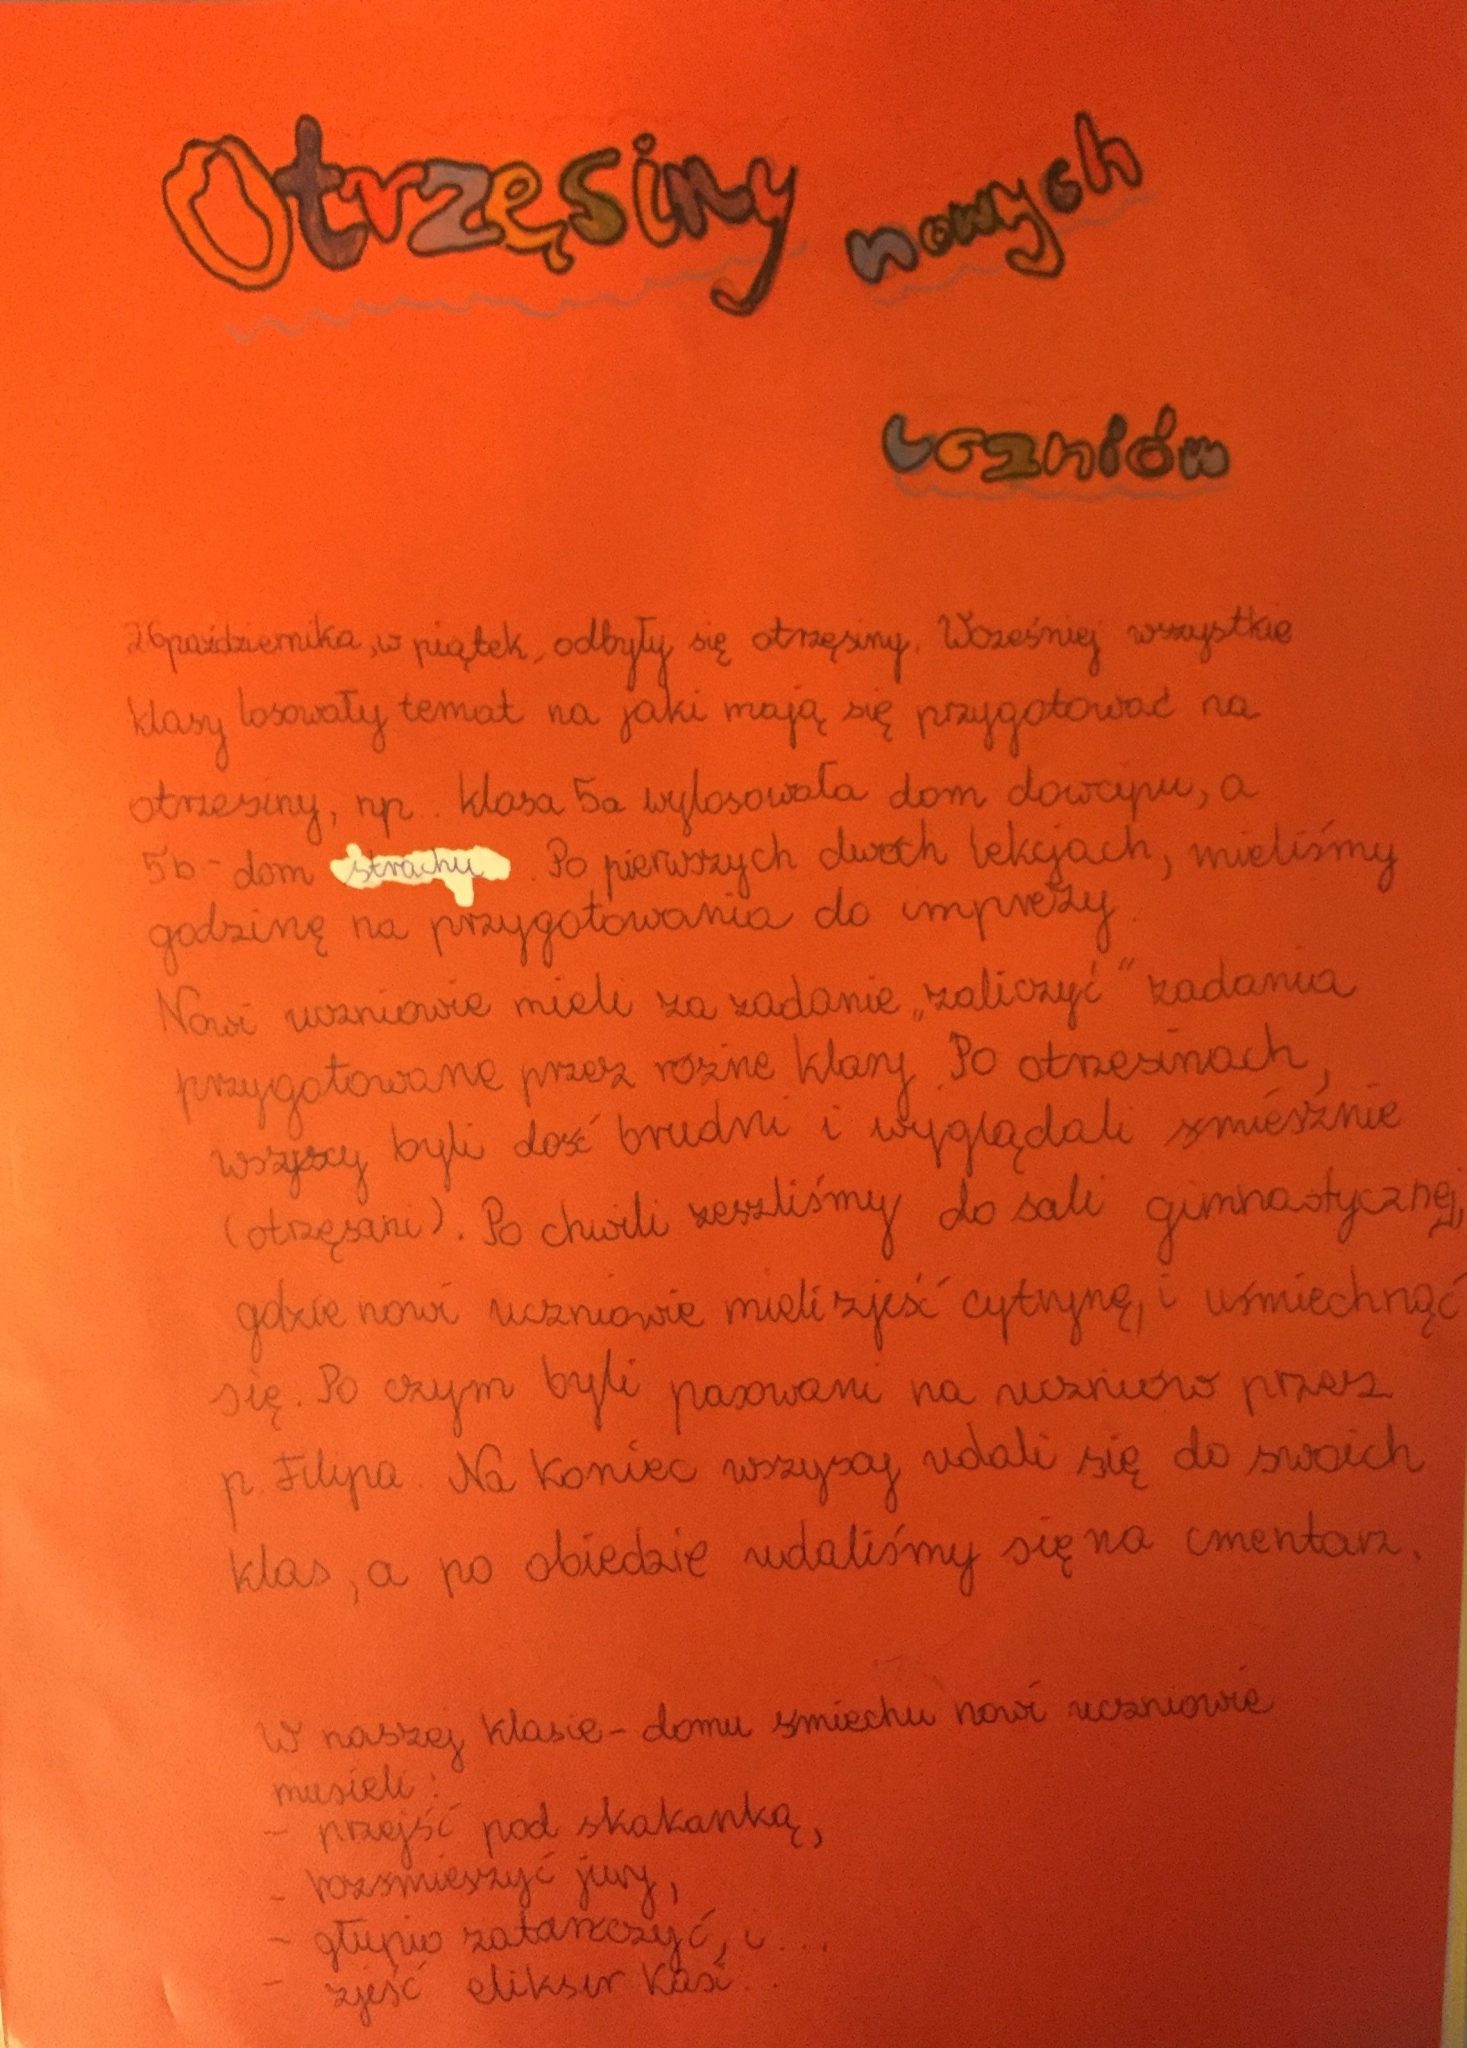 Otrzęsiny nowych
uczniów
26 października, w piątek, odbyły się otrzęsiny. Wcześniej wszystkie
klasy losowały temat na jaki mają się przygotować na
otrzęsiny, np. klasa 5a wylosowała dom dowcipu, a
5b - dom strachu. Po pierwszych dwóch lekcjach, mieliśmy
godzinę na przygotowania do imprezy.
Nowi uczniowie mieli za zadanie „zaliczyć" zadania
przygotowane przez różne klasy. Po otrzęsinach,
wszyscy byli dość brudni i wyglądali śmiesznie
(otrzęsani). Po chwili zeszliśmy do sali gimnastycznej,
gdzie nowi uczniowie mieli zjeść cytrynę, i uśmiechnąć
się. Po czym byli pasowani na uczniów przez
p. Filipa. Na koniec wszyscy udali się do swoich
klas, a po obiedzie udaliśmy się na cmentarz.
W naszej klasie - domu śmiechu nowi uczniowie
musieli:
- przejść pod skakanką,
- rozśmieszyć jury,
- głupio zatańczyć, i...
- zjeść eliksir Kasi..